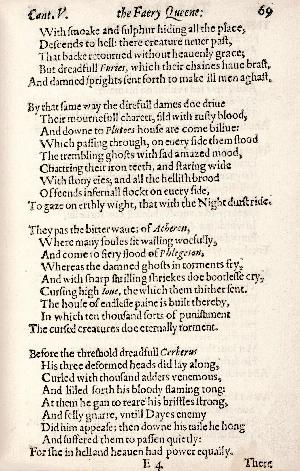 Cant. V. the Faery Queene: 69
With smoake and sulphur hiding all the place,
Descends to hell: there creature neuer past,
That backe retourned without heauenly grace;
But dreadfull Furies, which their chaines haue brast,
And damned sprights sent forth to make ill men aghast.
By that same way the direfull dames doe driue
Their mournefull charett, fild with rusty blood,
And downe to Plutoes house are come biliue:
Which passing through, on euery side them stood
The trembling ghosts with sad amazed mood,
Chattring their iron teeth, and staring wide
With stony eies; and all the hellish brood
Of feends infernall flockt on euery side,
To gaze on erthly wight, that with the Night durst ride.
They pas the bitter waues of Acheron,
Where many soules sit wailing woefully,
And come to fiery flood of Phlegeton,
Whereas the damned ghosts in torments fry,
And with sharp shrilling shriekes doe bootlesse cry,
Cursing high Ioue, the which them thither sent.
The house of endlesse paine is built thereby,
In which ten thousand sorts of punishment
The cursed creatures doe eternally torment.
Before the threshold dreadfull Cerberus
His three deformed heads did lay along,
Curled with thousand adders venemous,
And lilled forth his bloody flaming tong:
At them he gan to reare his bristles strong,
And felly gnarre, vntill Dayes enemy
Did him appease; then downe his taile he hong
And suffered them to passen quietly:
For she in hell and heauen had power equally.
E 4 There